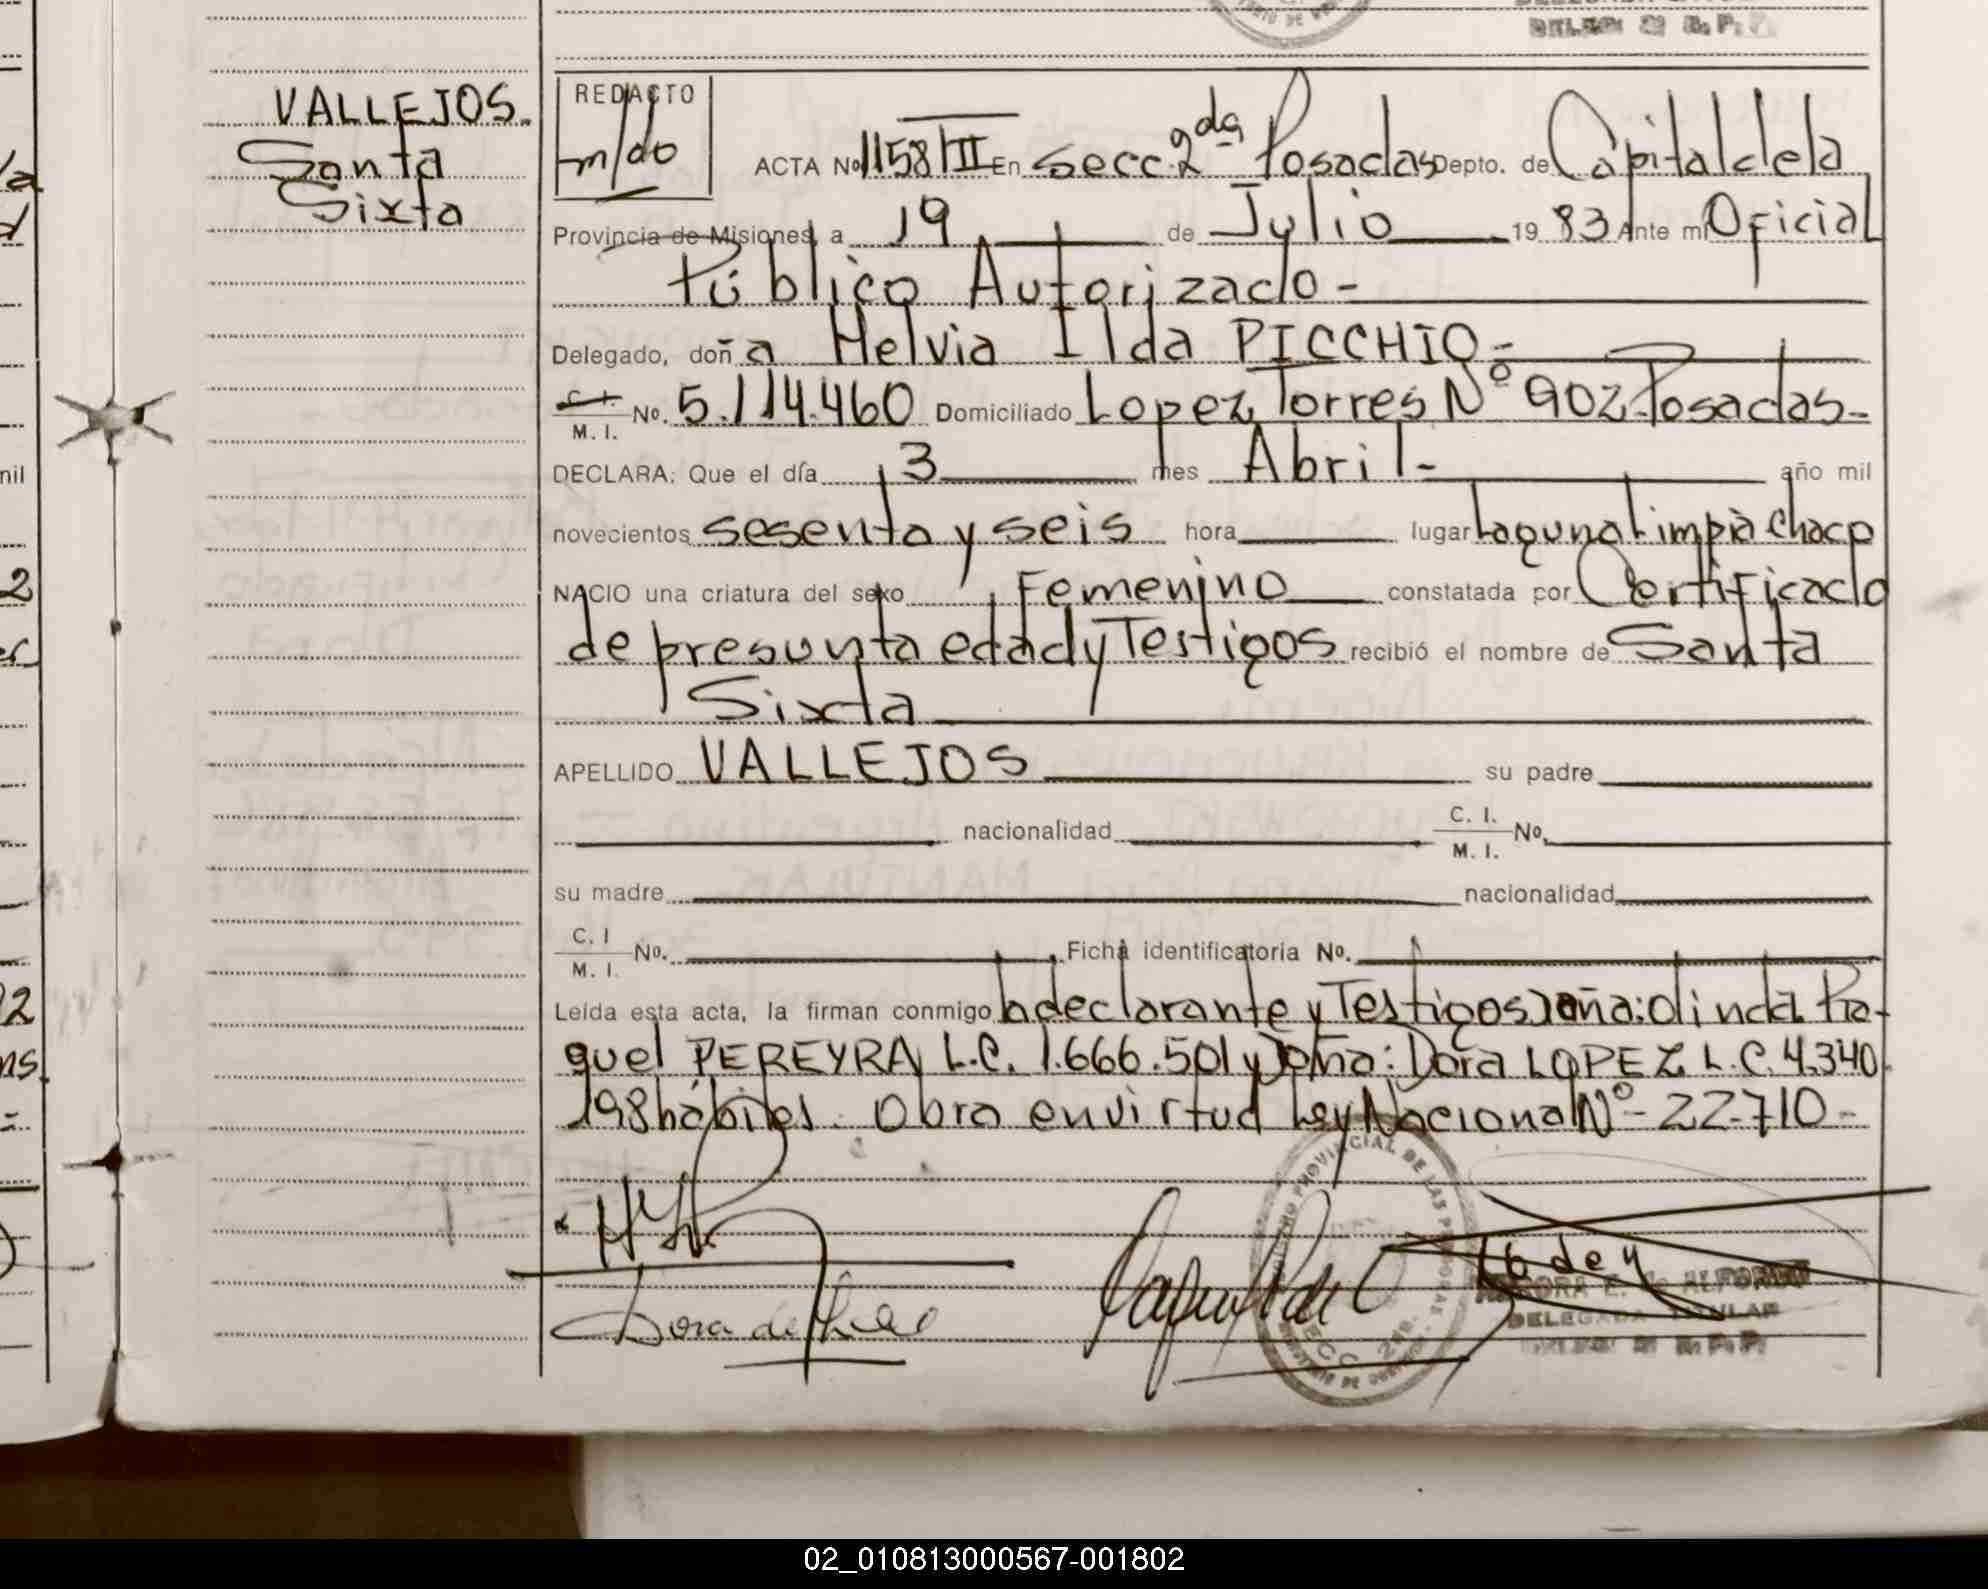 DELEG 2 R. P. P.
VALLEJOS
Santa
Sixta
REDACTO
m/do
ACTA No 1158/II En Secc. 2da Posadas Depto. de Capital de la
Provincia de Misiones, a 19 de Julio 19 83 Ante mi Oficial
Público Autorizado -
Delegado, doña Helvia Ilda PICCHIO -
C. I.
M. I. No. 5.114.460 Domiciliado Lopez Torres Nº 902 - Posadas -
DECLARA: Que el día 3 mes Abril - año mil
novecientos sesenta y seis hora lugar Laguna Limpia Chaco
NACIO una criatura del sexo Femenino constatada por Certificado
de presunta edad y Testigos recibió el nombre de Santa
Sixta
APELLIDO VALLEJOS su padre
nacionalidad C. I.
M. I. No.
su madre nacionalidad
C. I
M. I. No. Ficha identificatoria No.
Leída esta acta, la firman conmigo la declarante y Testigos Doña: Olinda Ra-
quel PEREYRA L.C. 1.666.501 y Doña: Dora LOPEZ L.C. 4.340
198 hábiles. Obra en virtud Ley Nacional Nº - 22.710 -
PROVINCIAL DE LAS PERSONAS
SECC. 2da.
DELEGADA TITULAR
nil
2
02_010813000567-001802